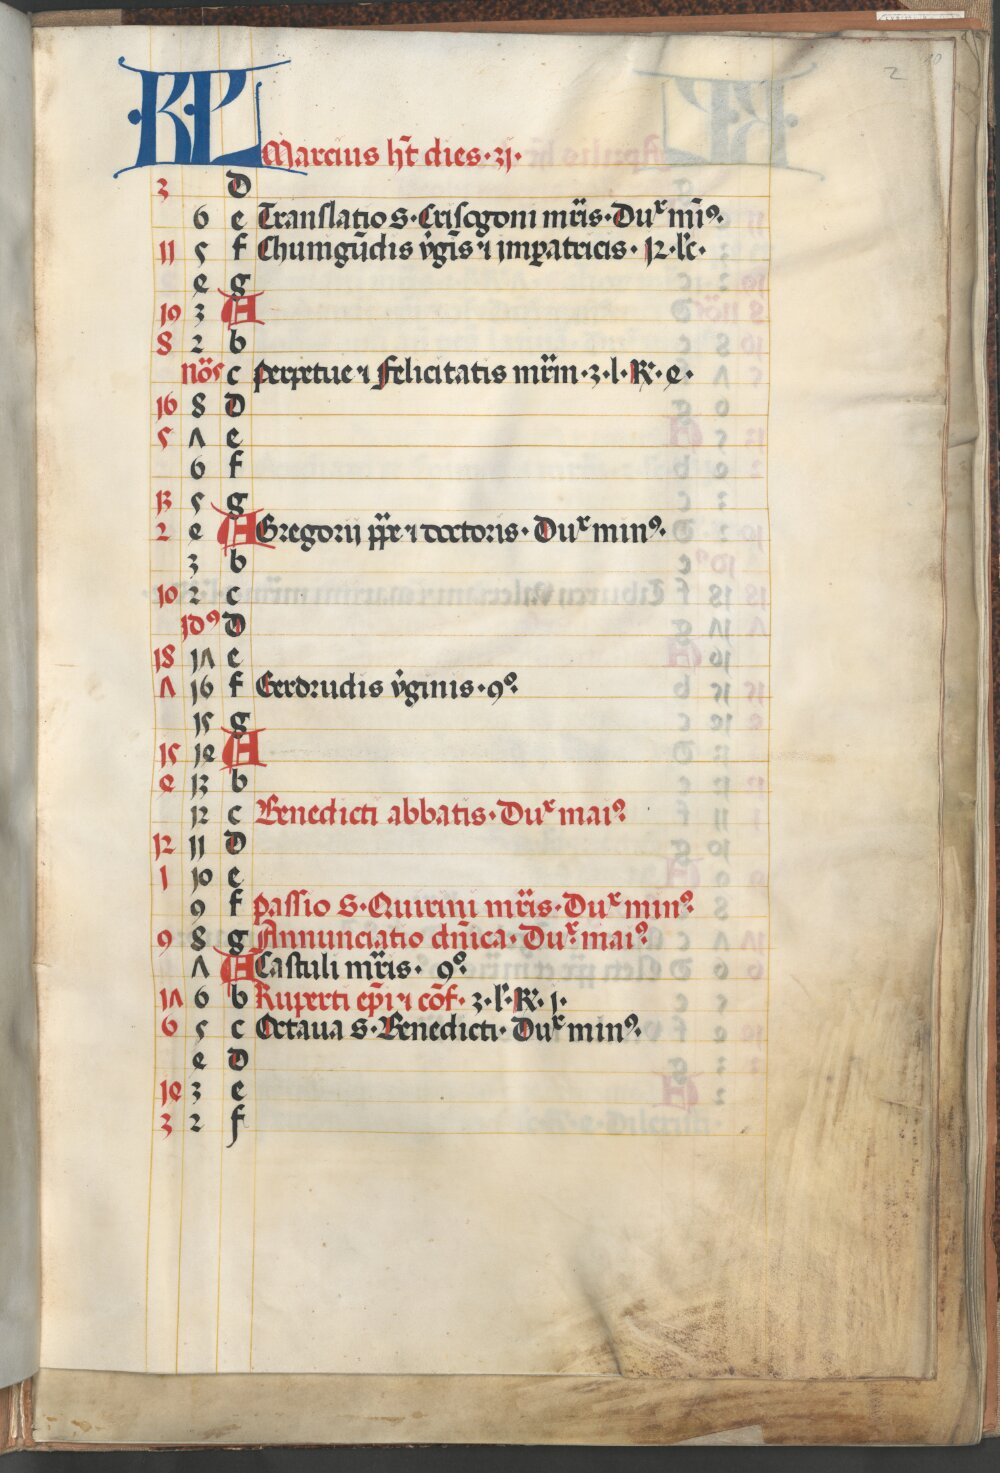 2
KL
Marcius h̄t dies · 31 ·
3 d
6 e Translatio S · Crisogoni mr̄is · Dux mi9 ·
11 5 f Chunigūdis v̄gīs ⁊ imꝑatricis · 12 · lc̄ ·
4 g
19 3 A
8 2 b
nōs c Perpetue ⁊ felicitatis mr̄m · 3 · l · R · 4 ·
16 8 d
5 7 e
6 f
13 5 g
2 4 A Gregorii pp̄e ⁊ doctoris · Dux min9 ·
3 b
10 2 c
id9 d
18 17 e
7 16 f Gerdrudis v̄ginis · 9o ·
15 g
15 14 A
4 13 b
12 c Benedicti abbatis · Dux mai9 ·
12 11 d
1 10 e
9 f Passio S · Quirini mr̄is · Dux min9 ·
9 8 g Annunciatio dn̄ica · Dux mai9 ·
7 A Castuli mr̄is · 9o ·
17 6 b Ruperti ep̄i ⁊ cōf · 3 · l · R · 1 ·
6 5 c Octaua S · Benedicti · Dux min9 ·
4 d
14 3 e
3 2 f